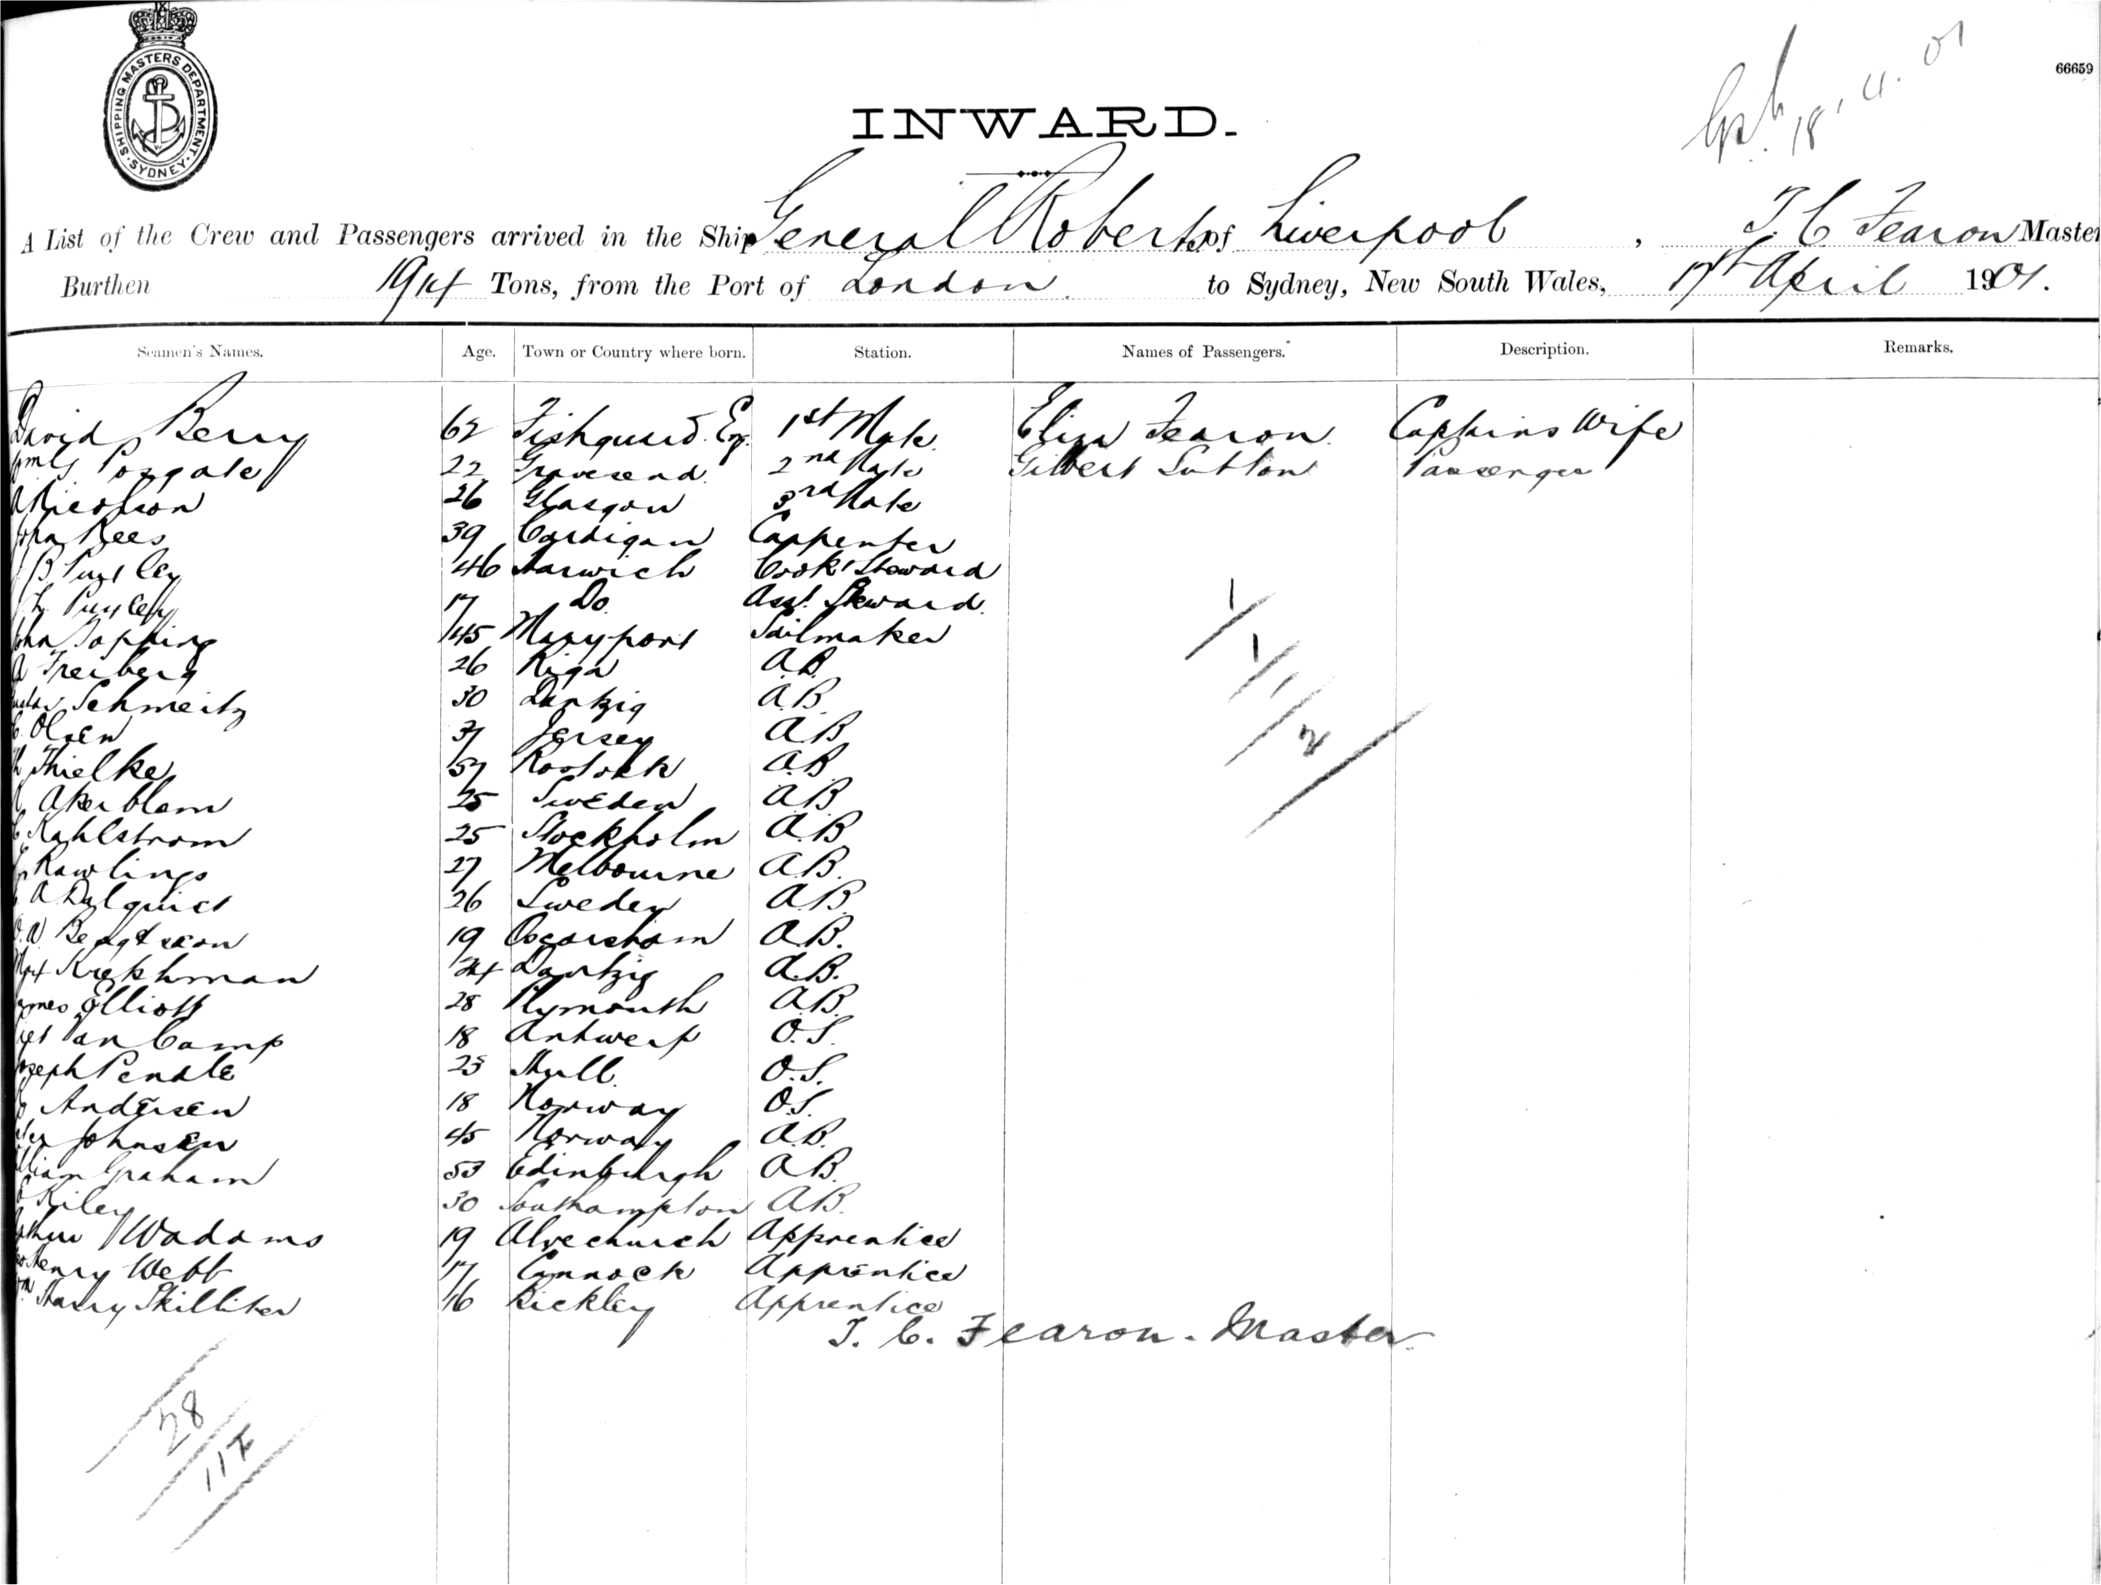 SHIPPING MASTERS DEPARTMENT · SYDNEY ·
66659
18.4.01
INWARD.
A List of the Crew and Passengers arrived in the Ship General Roberts of Liverpool, T. C Fearon Master
Burthen 1914 Tons, from the Port of London to Sydney, New South Wales, 17th April 1901.
Seamen's Names. Age. Town or Country where born. Station. Names of Passengers. Description. Remarks.
David Berry 62 Fishguard. Eng. 1st Mate. Eliza Fearon. Captains Wife
Posgate 22 Gravesend. 2nd Mate Gilbert Sutton Passenger
A Nicolson 26 Glasgow 3rd Mate
John Rees 39 Cardigan Carpenter
B Pugsley 46 Harwich Cook & Steward
Pugsley 17 Do Asst. Steward.
John Topping 45 Maryport Sailmaker
A Freiberg 26 Riga A.B.
Schmeitz 30 Dantzig A.B.
C. Olsen 37 Jersey A.B
Thielke 57 Rostock A.B
Akerblom 25 Sweden A.B
C Kahlstrom 25 Stockholm A.B
Rawlings 27 Melbourne A.B.
A Dylquist 26 Sweden A.B.
O. A. Bengtsson 19 Oscarsham A.B.
Max Krekhman 24 Dantzig A.B.
James Elliott 28 Plymouth A.B.
Van Camp 18 Antwerp O.S.
Joseph Pendle 23 Hull. O.S.
Andersen 18 Norway O.S.
Peter Johnsen 45 Norway A.B.
William Graham 53 Edinburgh A.B.
Riley 30 Southampton A.B.
Arthur Wadams 19 Alvechurch Apprentice
Henry Webb 17 Cannock Apprentice
Harry Skilliter 16 Bickley Apprentice
T. C. Fearon. Master.
1
1
1
2
28